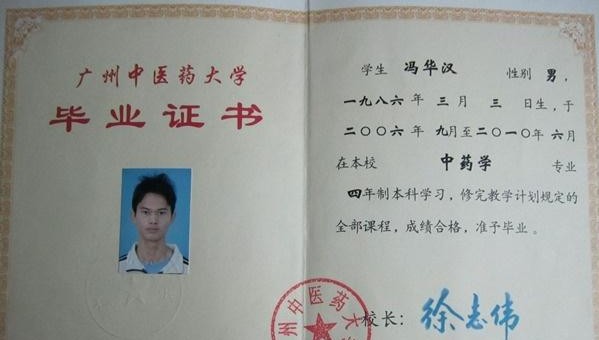 广州中医药大学
毕业证书
学生 冯华汉 性别 男，
一九八六 年 三 月 三 日生，于
二〇〇六 年 九月至二〇一〇年 六月
在本校 中药学 专业
四年制本科学习，修完教学计划规定的
全部课程，成绩合格，准予毕业。
校长：徐志伟
州中医药大